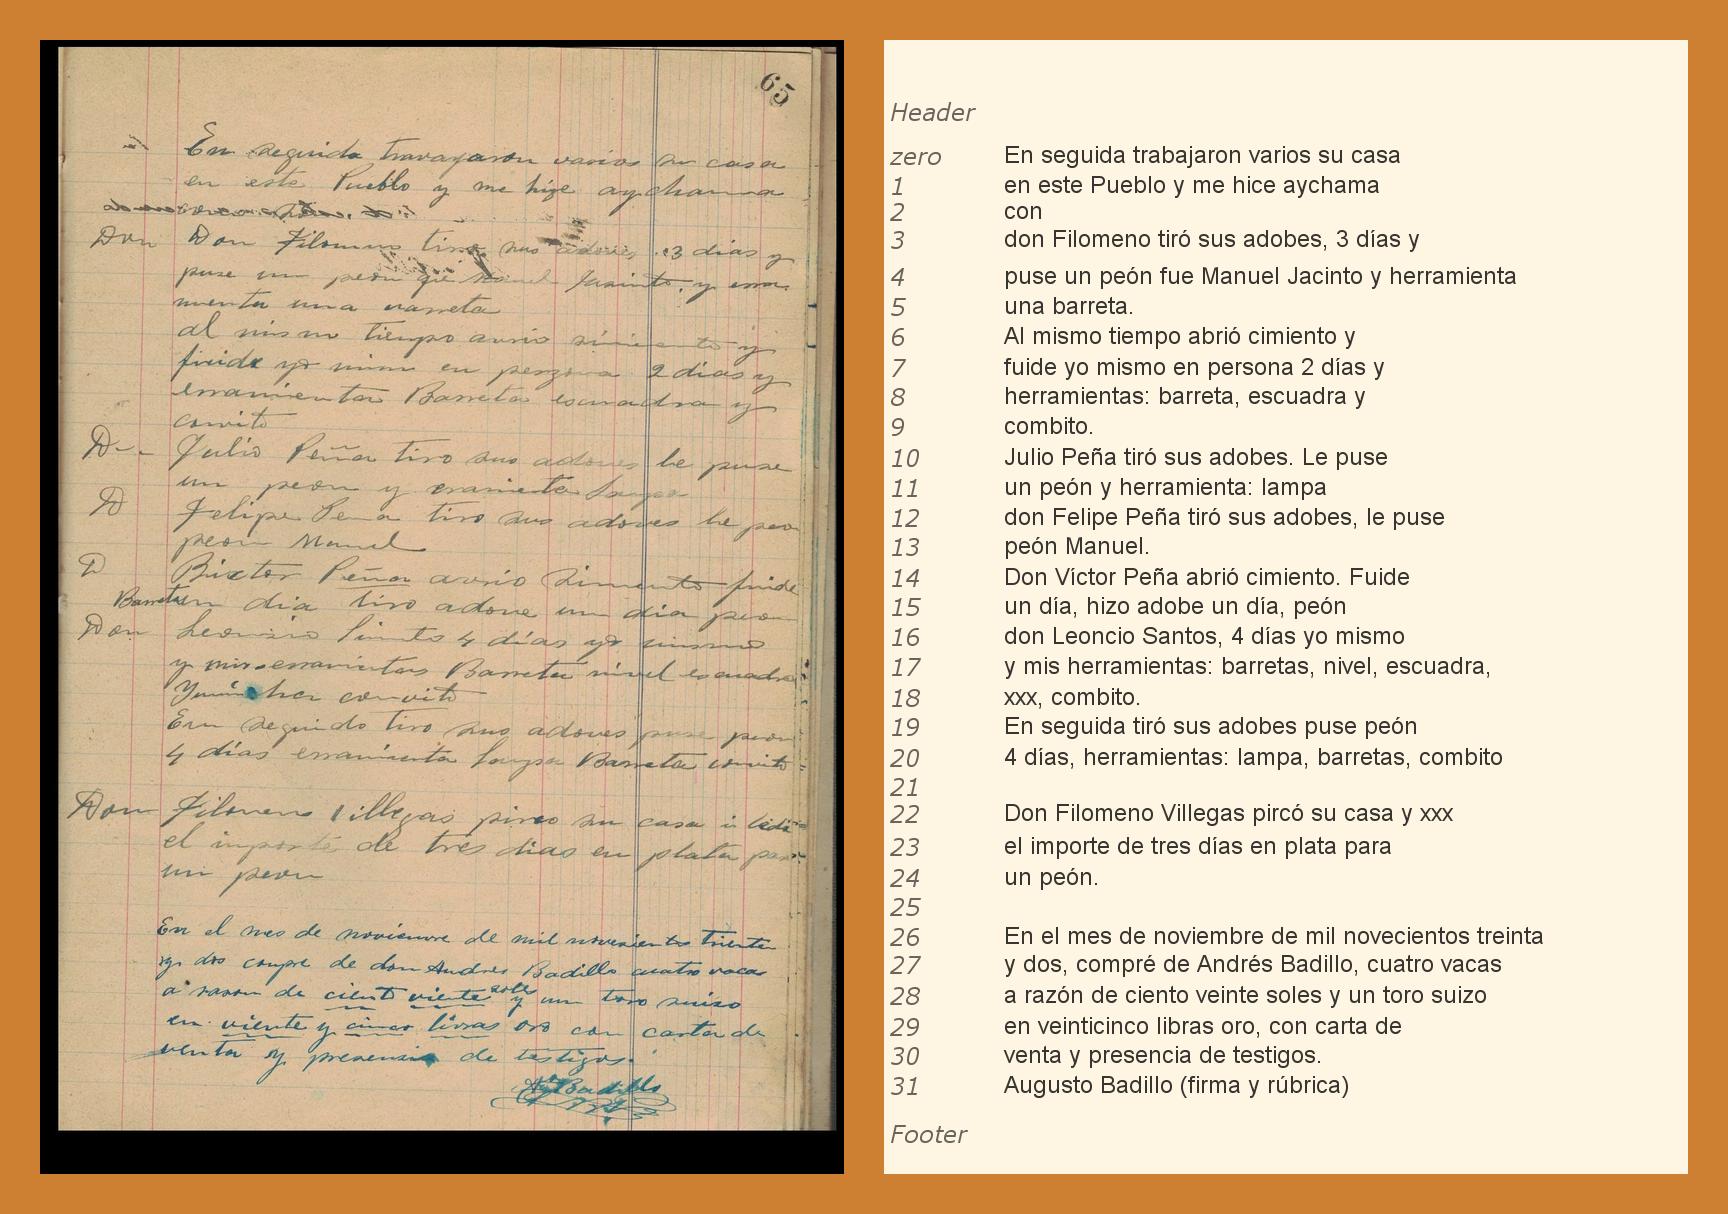 65
En seguida travajaron varios su casa
en este Pueblo y me hize aychama
Don Don Filomeno tiro sus adoves 3 dias y
puse un peon Manuel Jacinto y erra
mienta una varreta
al mismo tiempo avrio simiento y
fuide yo mismo en perzona 2 dias y
erramienta Barreta escuadra y
convito
D Julio Peña tiro sus adoves le puse
un peon y eramienta lampa
D Felipe Peña tiro sus adoves le
peon Manuel
D Bictor Peña avrio simiento fuide
Barreta un dia tiro adove un dia peon
Don Leoncio 4 dias yo mismo
y mis erramientas Barreta nivel escuadra
convito
En seguido tiro sus adoves puse peon
4 dias erramienta lampa Barreta convito
Don Filomeno Villegas pirco su casa
el importe de tres dias en plata para
un peon
En el mes de noviemvre de mil novesientos trienta
y dos compre de don Andres Badillo cuatro vacas
a rason de cient viente sole y un toro suizo
en viente y cinco livras oro con carta de
venta y presensia de testigos.
Ag Badillo
Header
zero En seguida trabajaron varios su casa
1 en este Pueblo y me hice aychama
2 con
3 don Filomeno tiró sus adobes, 3 días y
4 puse un peón fue Manuel Jacinto y herramienta
5 una barreta.
6 Al mismo tiempo abrió cimiento y
7 fuide yo mismo en persona 2 días y
8 herramientas: barreta, escuadra y
9 combito.
10 Julio Peña tiró sus adobes. Le puse
11 un peón y herramienta: lampa
12 don Felipe Peña tiró sus adobes, le puse
13 peón Manuel.
14 Don Víctor Peña abrió cimiento. Fuide
15 un día, hizo adobe un día, peón
16 don Leoncio Santos, 4 días yo mismo
17 y mis herramientas: barretas, nivel, escuadra,
18 xxx, combito.
19 En seguida tiró sus adobes puse peón
20 4 días, herramientas: lampa, barretas, combito
21
22 Don Filomeno Villegas pircó su casa y xxx
23 el importe de tres días en plata para
24 un peón.
25
26 En el mes de noviembre de mil novecientos treinta
27 y dos, compré de Andrés Badillo, cuatro vacas
28 a razón de ciento veinte soles y un toro suizo
29 en veinticinco libras oro, con carta de
30 venta y presencia de testigos.
31 Augusto Badillo (firma y rúbrica)
Footer